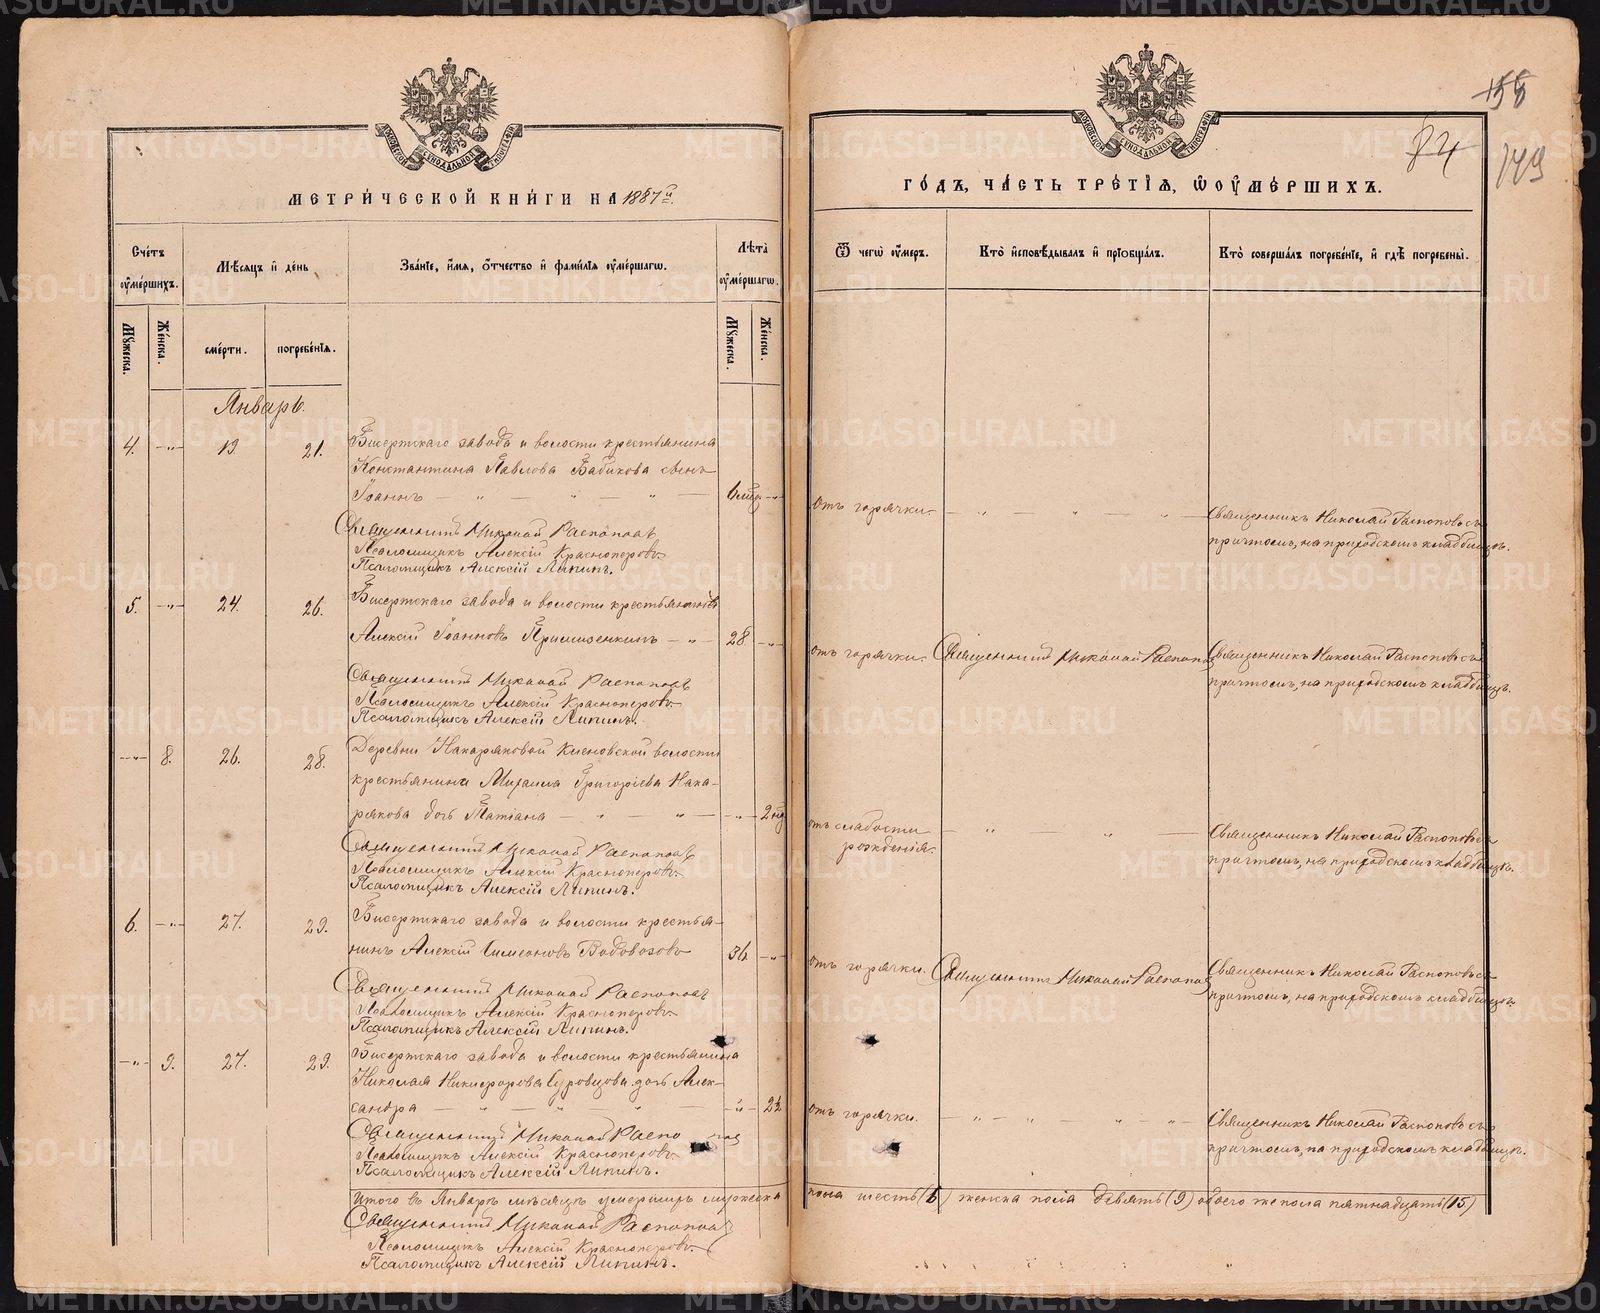 МЕТРИ́ЧЕСКОЙ КНИ́ГИ НА 1887 й.
Сче́тъ ᲂу҆ме́ршихъ.
Мѣ́сяцъ и҆ де́нь
Зва́нїе, и҆́мя, ѻ҆́тчество и҆ фами́лїя ᲂу҆ме́ршагѡ.
Лѣ̑та ᲂу҆ме́ршагѡ.
Мꙋ́жеска.
Же́нска.
сме́рти.
погребе́нїя.
Мꙋ́жеска.
Же́нска.
Январь.
4. —„— 19. 21. Бисертскаго завода и волости крестьянина
Константина Павлова Бабикова сынъ
Іоаннъ — „ — „ — „ — 6 мѣс. —„—
Священникъ Николай Распоповъ
Псаломщикъ Алексій Красноперовъ
Псаломщикъ Алексій Липинъ.
5. —„— 24. 26. Бисертскаго завода и волости крестьянинъ
Алексій Іоанновъ — „ — 28 —„—
Священникъ Николай Распоповъ
Псаломщикъ Алексій Красноперовъ
Псаломщикъ Алексій Липинъ.
—„— 8. 26. 28. Деревни Накаряковой Кленовской волости
крестьянина Михаила Григоріева Нака-
рякова дочь Татіана — „ — „ — —„— 2 нед.
Священникъ Николай Распоповъ
Псаломщикъ Алексій Красноперовъ
Псаломщикъ Алексій Липинъ.
6. —„— 27. 29. Бисертскаго завода и волости крестья-
нинъ Алексій Симеоновъ Водовозовъ 36 —„—
Священникъ Николай Распоповъ
Псаломщикъ Алексій Красноперовъ
Псаломщикъ Алексій Липинъ.
—„— 9. 27. 29. Бисертскаго завода и волости крестьянина
Николая Никифорова Суровцова дочь Алек-
сандра — „ — „ — „ — —„— 2½
Священникъ Николай Распоповъ
Псаломщикъ Алексій Красноперовъ
Псаломщикъ Алексій Липинъ.
Итого въ Январѣ мѣсяцѣ умершихъ мужеска
Священникъ Николай Распоповъ
Псаломщикъ Алексій Красноперовъ
Псаломщикъ Алексій Липинъ.
158
84
149
ГО́ДЪ, ЧА́СТЬ ТРЕ́ТЇЯ, Ѡ҆ ᲂУ҆МЕ́РШИХЪ.
Ѿ чегѡ̀ ᲂу҆́меръ.
Кто̀ и҆сповѣ́дывалъ и҆ прїѡбща́лъ.
Кто̀ соверша́лъ погребе́нїе, и҆ гдѣ̀ погребены̀.
отъ горячки. — „ — „ — „ — Священникъ Николай Распоповъ съ
причтомъ, на приходскомъ кладбищѣ.
отъ горячки. Священникъ Николай Распоповъ Священникъ Николай Распоповъ съ
причтомъ, на приходскомъ кладбищѣ.
отъ слабости — „ — „ — Священникъ Николай Распоповъ съ
рожденія. причтомъ, на приходскомъ кладбищѣ.
отъ горячки. Священникъ Николай Распоповъ Священникъ Николай Распоповъ съ
причтомъ, на приходскомъ кладбищѣ.
отъ горячки. — „ — „ — „ — „ — Священникъ Николай Распоповъ съ
причтомъ, на приходскомъ кладбищѣ.
пола шесть (6) женска пола девять (9) обоего же пола пятнадцать (15)
METRIKI.GASO-URAL.RU